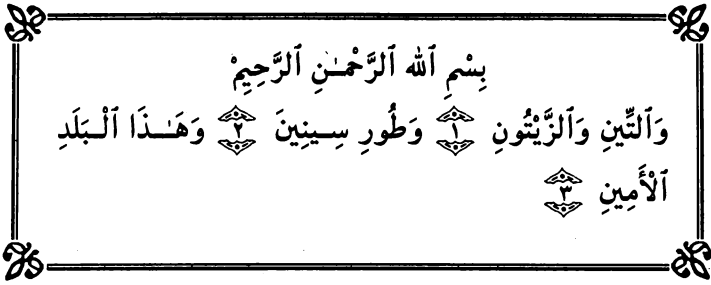 بِسْمِ ٱللَّه ٱلرَّحْمَـٰنِ ٱلرَّحِيمْ
وَٱلتِّينِ وَٱلزَّيْتُونِ ١ وَطُورِ سِـينِينَ ٢ وَهَـٰـذَا ٱلْـبَلَدِ
ٱلْأَمِينِ ٣